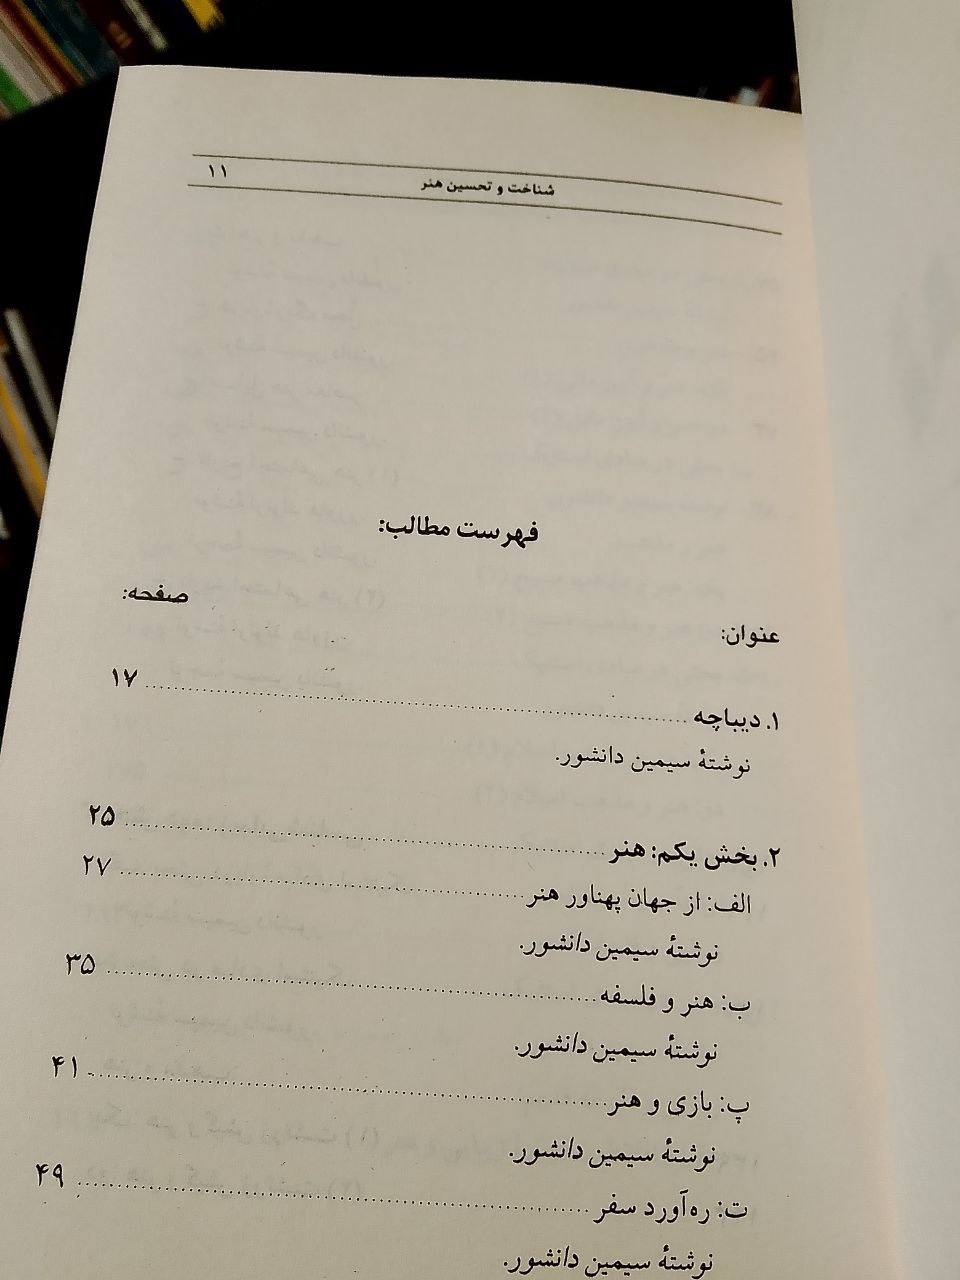 شناخت و تحسین هنر ۱۱
فهرست مطالب:
عنوان: صفحه:
۱. دیباچه ........ ۱۷
نوشتهٔ سیمین دانشور.
۲. بخش یکم: هنر ........ ۲۵
الف: از جهان پهناور هنر ........ ۲۷
نوشتهٔ سیمین دانشور.
ب: هنر و فلسفه ........ ۳۵
نوشتهٔ سیمین دانشور.
پ: بازی و هنر ........ ۴۱
نوشتهٔ سیمین دانشور.
ت: ره‌آورد سفر ........ ۴۹
نوشتهٔ سیمین دانشور.